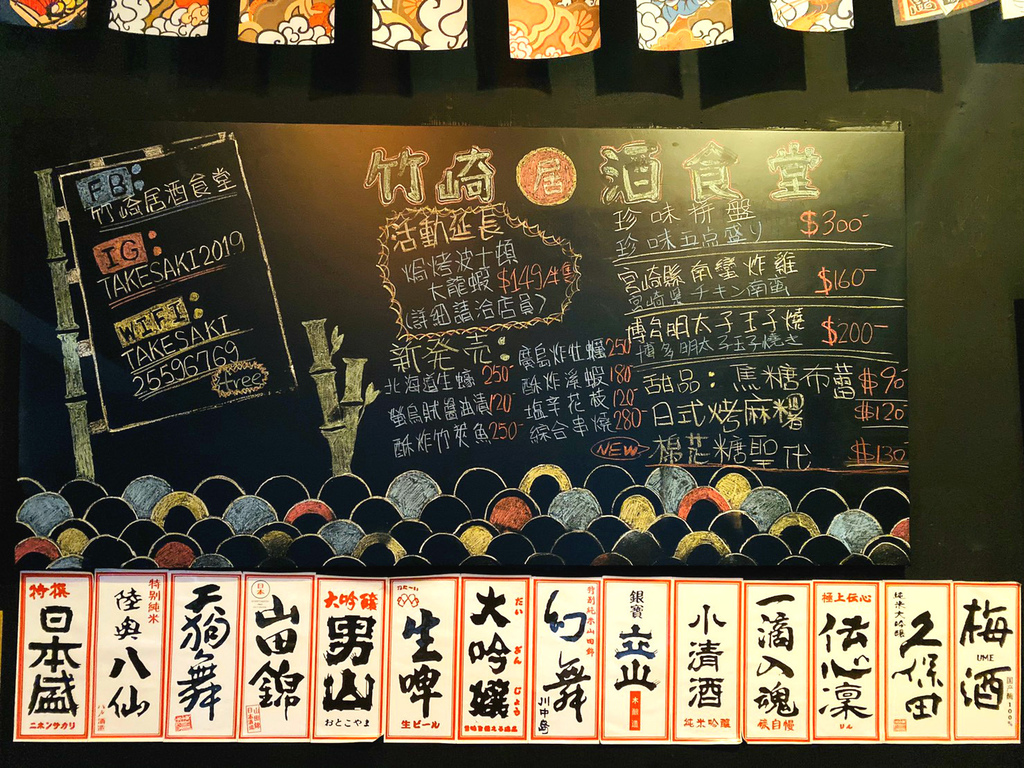 竹崎居酒食堂
FB:
竹崎居酒食堂
IG:
TAKESAKI2019
WIFI:
TAKESAKI
25596769
free
活動延長
焗烤波士頓
大龍蝦 $149/隻
(詳細請洽店員)
新発売:
北海道生蠔 250-
螢烏賊醬油漬 120-
酥炸竹筴魚 250-
廣島炸牡蠣 250-
酥炸溪蝦 180-
塩辛花枝 120-
綜合串燒 280-
珍味拼盤 $300-
珍味五点盛り
宮崎縣南蠻炸雞 $160-
宮崎県チキン南蛮
博多明太子玉子燒 $200-
博多明太子玉子焼き
甜品: 焦糖布蕾 $90-
日式烤麻糬 $120-
NEW 棉花糖聖代 $130-
特撰
日本盛
ニホンサカリ
特別純米
陸奥八仙
ハチ酒楽
天狗舞
日本一
山田錦
大吟醸
男山
おとこやま
生啤
生ビール
大吟醸
だいぎんじょう
特別純米山田錦
幻舞
川中島
銀賞
立山
本醸造
小清酒
純米吟醸
一滴入魂
蔵自慢
極上伝心
伝心凛
りん
純米大吟醸
久保田
梅酒
UME